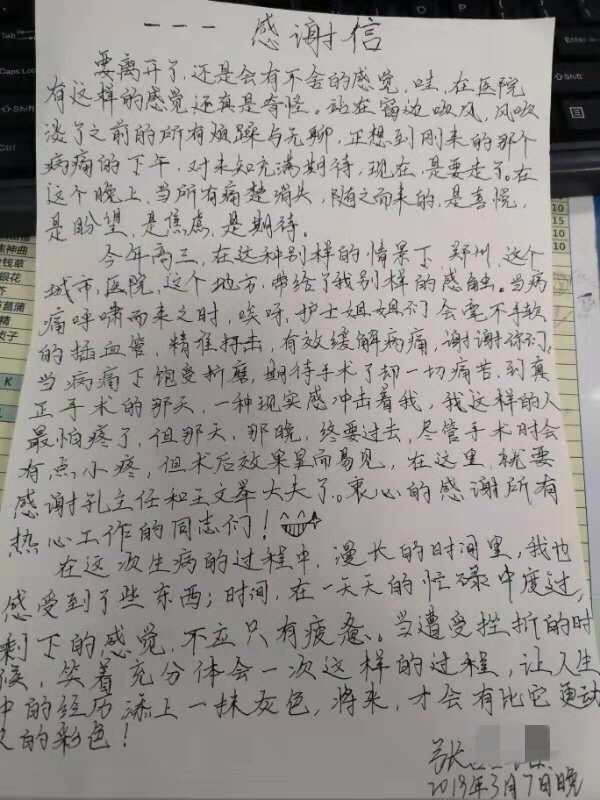 --- 感谢信
要离开了,还是会有不舍的感觉,哇,在医院
有这样的感觉还真是奇怪。站在窗边吹风,风吹
淡了之前的所有烦躁与无聊,正想到刚来的那个
病痛的下午,对未知充满期待,现在,是要走了。在
这个晚上,当所有痛楚消失,随之而来的,是喜悦,
是盼望,是焦虑,是期待。
今年高三,在这种别样的情景下,郑州,这个
城市,医院,这个地方,带给了我别样的感触。当病
痛呼啸而来之时,唉呀,护士姐姐们会毫不手软
的插血管,精准打击,有效缓解病痛,谢谢你们,
当病痛下饱受折磨,期待手术了却一切痛苦,到真
正手术的那天,一种现实感冲击着我,我这样的人
最怕疼了,但那天,那晚,终要过去,尽管手术时会
有点小疼,但术后效果显而易见,在这里,就要
感谢孔主任和王文举大夫了。衷心的感谢所有
热心工作的同志们!
在这次生病的过程中,漫长的时间里,我也
感受到了些东西;时间,在一天天的忙碌中度过,
剩下的感觉,不应只有疲惫。当遭受挫折的时
候,笑着充分体会一次这样的过程,让人生
中的经历添上一抹灰色,将来,才会有比它更动
人的彩色!
张
2019年3月7日晚
Tab
Caps Lock
Shift
Ctrl
Shift
神曲
金钱草
银花
石菖蒲
K
10
15
10